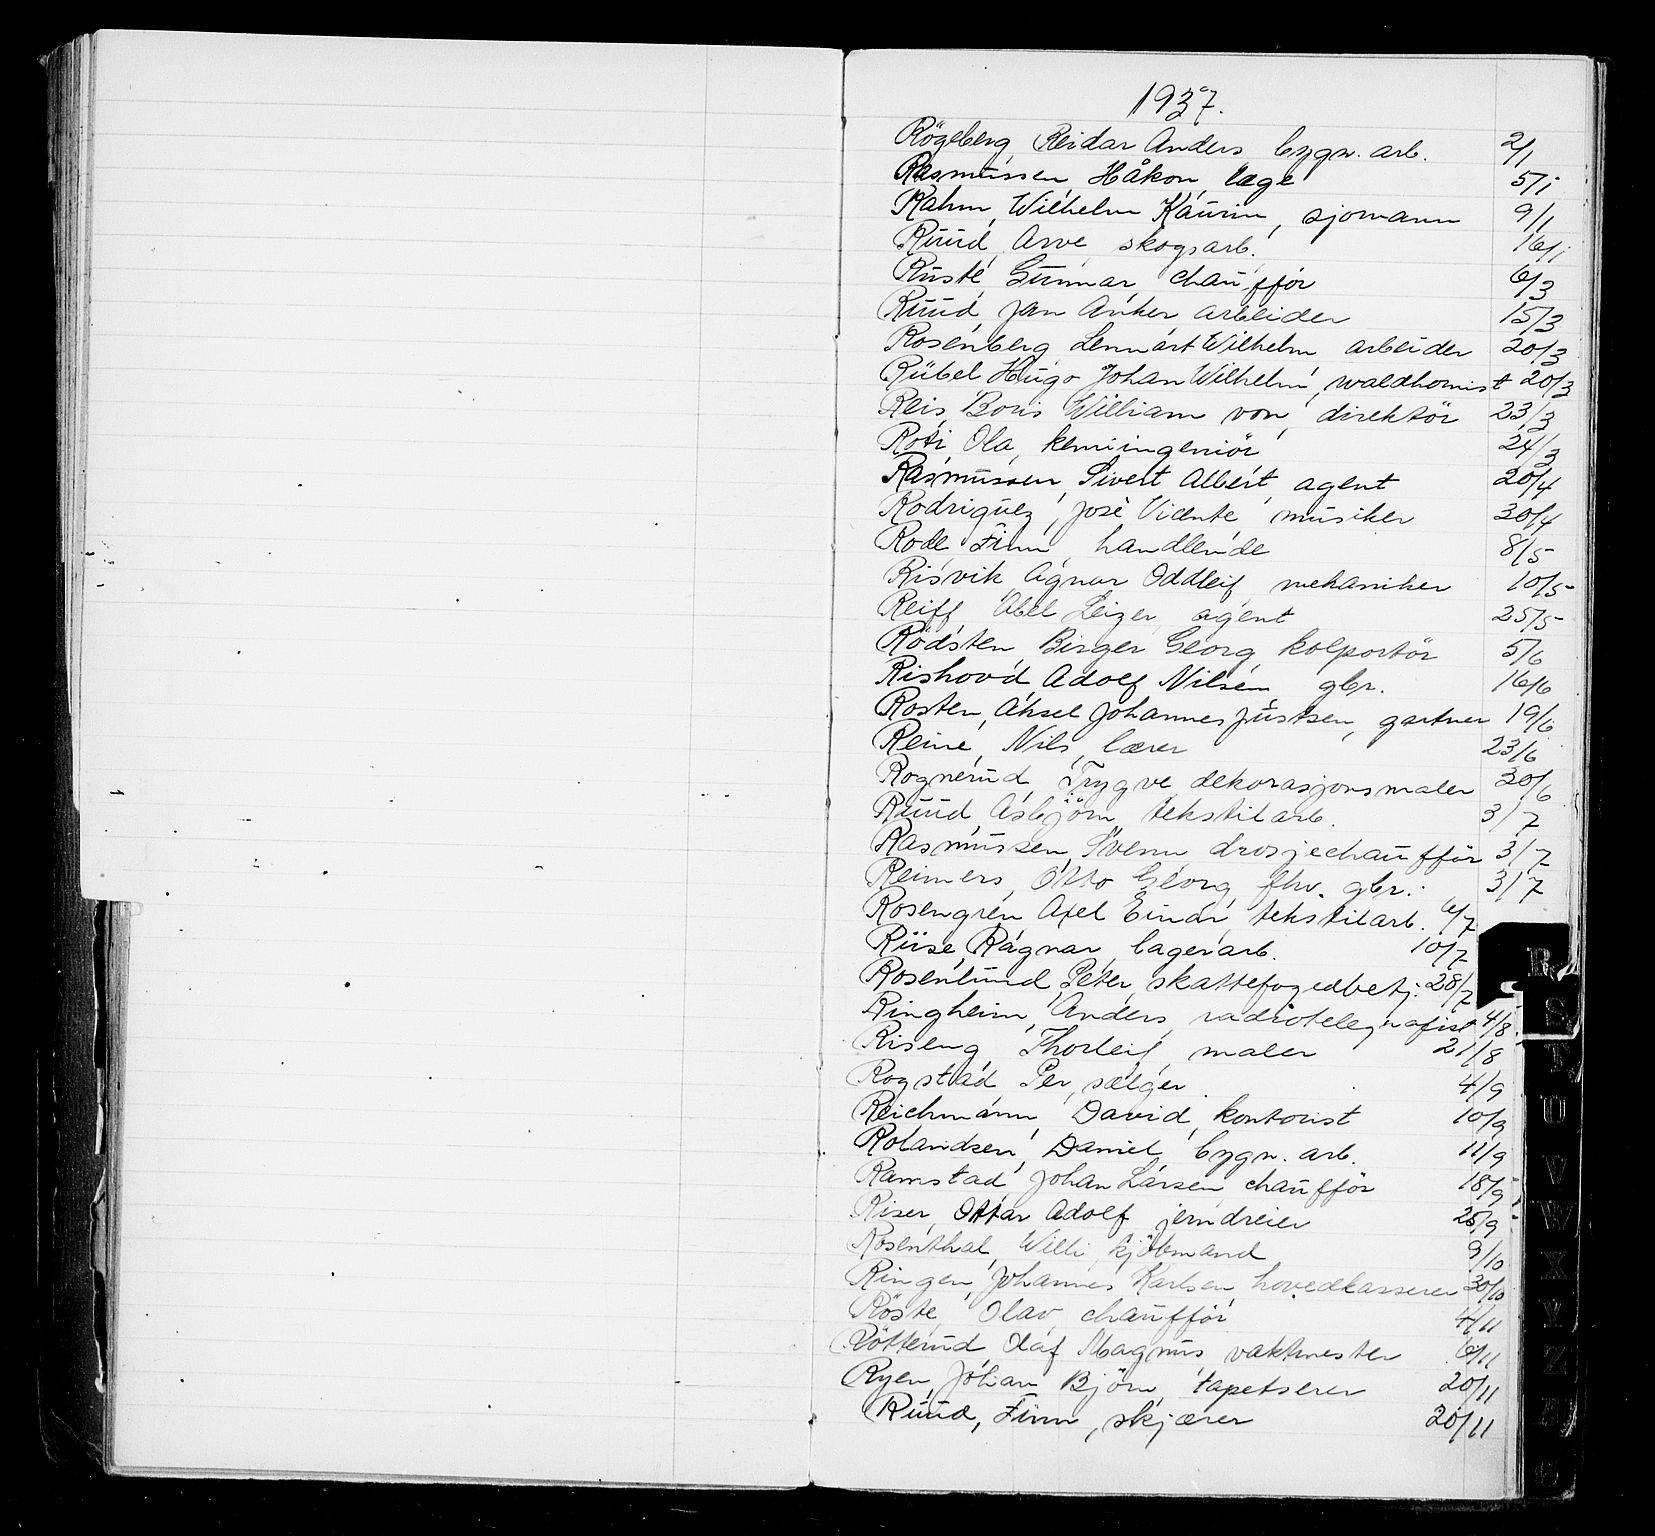 1937.
Rögeberg Reidar Anders bygn. arb. 2/1
Rasmussen Håkon, læge 5/1
Rahm, Wilhelm Kaurin, sjomann 9/1
Ruud, Arve, skogsarb. 16/1
Ruste, Gunnar, chaufför 6/3
Ruud Jan Anker arbeider 15/3
Rosenberg, Lennart Wilhelm arbeider 20/3
Rübel Hugo Johan Wilhelm, waldhornist 20/3
Reis, Boris William von, direktör 23/3
Roti, Ola, kemiingeniör 24/3
Rasmussen, Sivert Albert, agent 20/4
Rodriguez, José Vicente musiker 30/4
Rode Finn, handlende 8/5
Risvik, Agnar Oddleif, mekaniker 10/5
Reiff, Abel Leizer, agent 25/5
Rödsten Birger Georg, kolportör 5/6
Rishovd Adolf Nilsen, gbr. 16/6
Rosten, Aksel Johannes Justsen, gartner 19/6
Reine, Nils, lærer 23/6
Rognerud, Trygve, dekorasjonsmaler 30/6
Ruud, Asbjörn, tekstilarb. 3/7
Rasmussen, Svenn drosjechaufför 3/7
Reimers, Otto Georg, fhv. gbr. 3/7
Rosengren Axel Einar tekstilarb. 6/7
Riise, Ragnar, lagerarb. 10/7
Rosenlund, Peter, skattefogedbetj. 28/7
Ringheim, Anders, radiotelegrafist 4/8
Riseng, Thorleif, maler 21/8
Rogstad, Per, sælger 4/9
Reichmann, David, kontorist 10/9
Rolandsen, Daniel, bygn. arb. 11/9
Ramstad Johan Larsen chaufför 18/9
Riser, Ottar Adolf, jerndreier 25/9
Rosenthal, Willi, kjöbmand 9/10
Ringen, Johannes Karlsen, hovedkasserer 30/10
Röste, Olav, chaufför 4/11
Rötterud Olaf Magnus vaktmester 6/11
Ryen, Johan Björn, tapetserer 20/11
Ruud, Finn, skjærer 20/11
R
S
T
U
V
W
X
Y
Z
Æ
Ø